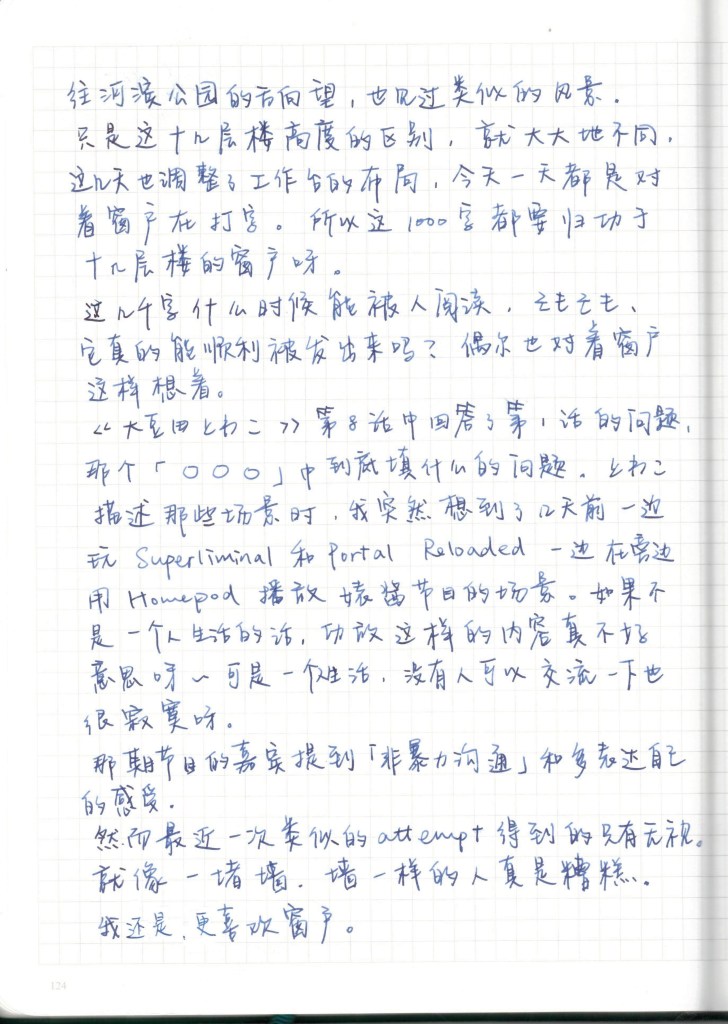 往河滨公园的方向望，也见过类似的风景．
只是这十几层楼高度的区别，就大大地不同．
这几天也调整了工作台的布局，今天一天都是对
着窗户在打字。所以这1000字都要归功于
十几层楼的窗户呀。
过几千字什么时候能被人阅读，そもそも、
它真的能顺利被发出来吗？偶尔也对着窗户
这样想着。
《大豆田とわこ》第8话中回答了第1话的问题，
那个「○○○」中到底填什么的问题．とわこ
描述那些场景时，我突然想到了几天前一边
玩 Superliminal 和 Portal Reloaded 一边在旁边
用 Homepod 播放 酱节目的场景。如果不
是一个人生活的话，功放这样的内容真不好
意思呀～可是一个人生活，没有人可以交流一下也
很寂寞呀。
那期节目的嘉宾提到「非暴力沟通」和多表达自己
的感受．
然而最近一次类似的 attempt 得到的只有无视。
就像一堵墙．墙一样的人真是糟糕．
我还是，更喜欢窗户。
124